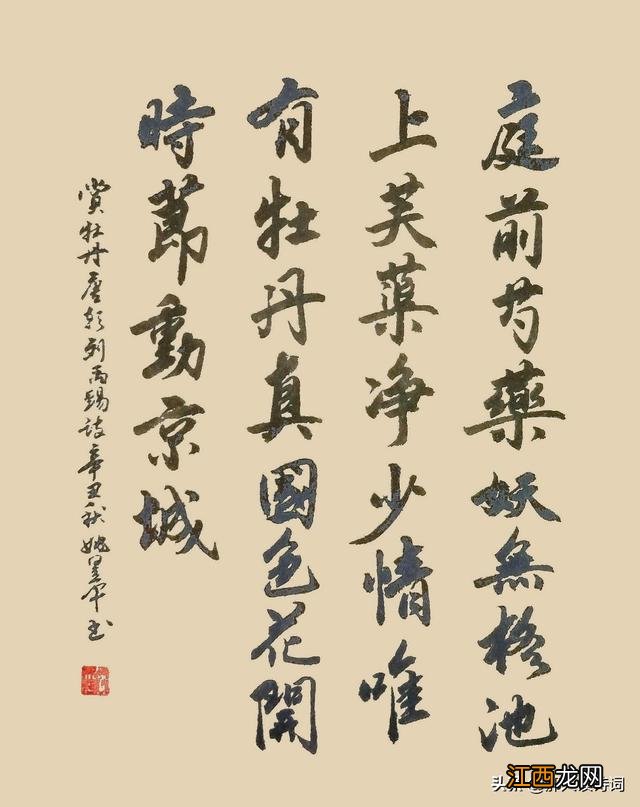 庭前芍藥妖無格池
上芙蕖净少情唯
有牡丹真國色花開
時節動京城
賞牡丹唐朝刘禹錫詩辛丑秋姚书
头条 诗词
江西龙网